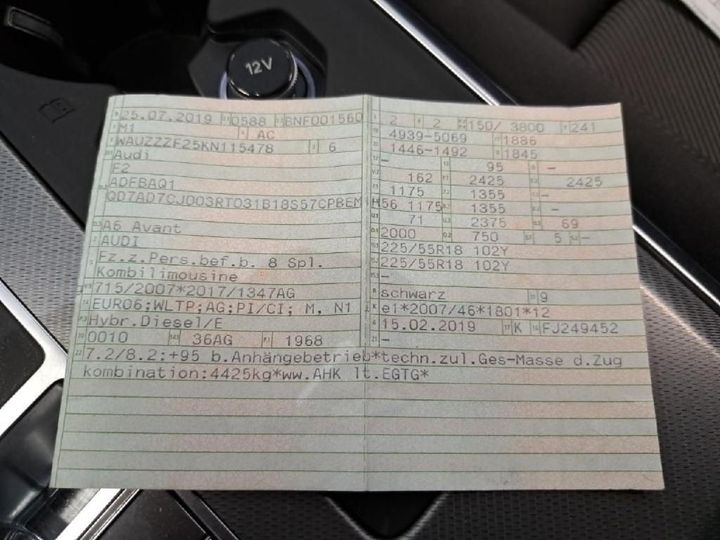 12V
25.07.2019 0588 BNF001560
M1 AC
WAUZZZF25KN115478 6
Audi
F2
ADFBAQ1
QD7AD7CJ003RT031B18S57CPBEM
A6 Avant
AUDI
Fz.z.Pers.bef.b. 8 Spl.
Kombilimousine
715/2007*2017/1347AG
EURO6;WLTP;AG;PI/CI; M, N1
Hybr.Diesel/E
0010 36AG 1968
2 2 150/ 3800 241
4939-5069 1886
1446-1492 1845
- 95 -
162 2425 2425
1175 1355 -
H56 1175 1355 -
71 2375 69
2000 750 5 -
225/55R18 102Y
225/55R18 102Y
-
schwarz 9
e1*2007/46*1801*12
15.02.2019 K FJ249452
-
7.2/8.2:+95 b.Anhängebetrieb*techn.zul.Ges-Masse d.Zug
kombination:4425kg*ww.AHK lt.EGTG*